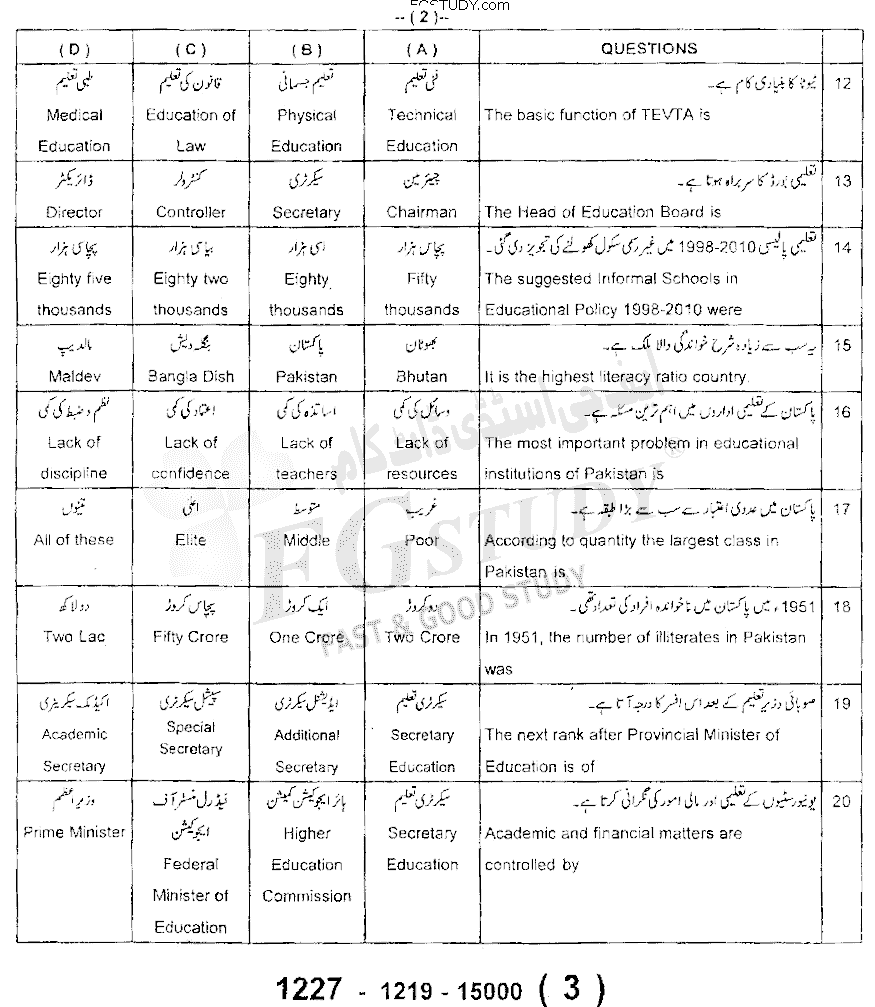 FGSTUDY.com
--(2)--
(D) (C) (B) (A) QUESTIONS
طبی تعلیم قانون کی تعلیم تعلیم جسمانی فنی تعلیم ٹیوٹا کا بنیادی کام ہے۔ 12
Medical Education of Physical Technical The basic function of TEVTA is
Education Law Education Education
ڈائریکٹر کنٹرولر سیکرٹری چیئرمین تعلیمی بورڈ کا سربراہ ہوتا ہے۔ 13
Director Controller Secretary Chairman The Head of Education Board is
پچاسی ہزار بیاسی ہزار اسی ہزار پچاس ہزار تعلیمی پالیسی 2010-1998 میں غیر رسمی سکول کھولنے کی تجویز دی گئی۔ 14
Eighty five Eighty two Eighty Fifty The suggested Informal Schools in
thousands thousands thousands thousands Educational Policy 1998-2010 were
مالدیپ بنگلہ دیش پاکستان بھوٹان یہ سب سے زیادہ شرح خواندگی والا ملک ہے۔ 15
Maldev Bangla Dish Pakistan Bhutan It is the highest literacy ratio country.
نظم و ضبط کی کمی اعتماد کی کمی اساتذہ کی کمی وسائل کی کمی پاکستان کے تعلیمی اداروں میں اہم ترین مسئلہ ہے۔ 16
Lack of Lack of Lack of Lack of The most important problem in educational
discipline confidence teachers resources institutions of Pakistan is
تینوں اعلٰی متوسط غریب پاکستان میں عددی اعتبار سے سب سے بڑا طبقہ ہے۔ 17
All of these Elite Middle Poor According to quantity the largest class in
Pakistan is
دو لاکھ پچاس کروڑ ایک کروڑ دو کروڑ 1951ء میں پاکستان میں ناخواندہ افراد کی تعداد تھی۔ 18
Two Lac Fifty Crore One Crore Two Crore In 1951, the number of illiterates in Pakistan
was
اکیڈمک سیکریٹری سپیشل سیکرٹری ایڈیشنل سیکرٹری سیکرٹری تعلیم صوبائی وزیر تعلیم کے بعد اس افسر کا درجہ آتا ہے۔ 19
Academic Special Additional Secretary The next rank after Provincial Minister of
Secretary Secretary Secretary Education Education is of
وزیر اعظم فیڈرل منسٹر آف ہائر ایجوکیشن کمیشن سیکرٹری تعلیم یونیورسٹیوں کے تعلیمی اور مالی امور کی نگرانی کرتا ہے۔ 20
Prime Minister ایجوکیشن Higher Secretary Academic and financial matters are
Federal Education Education controlled by
Minister of Commission
Education
ایف جی اسٹڈی ڈاٹ کام
FGSTUDY®
FAST & GOOD STUDY
1227 - 1219 - 15000 (3)